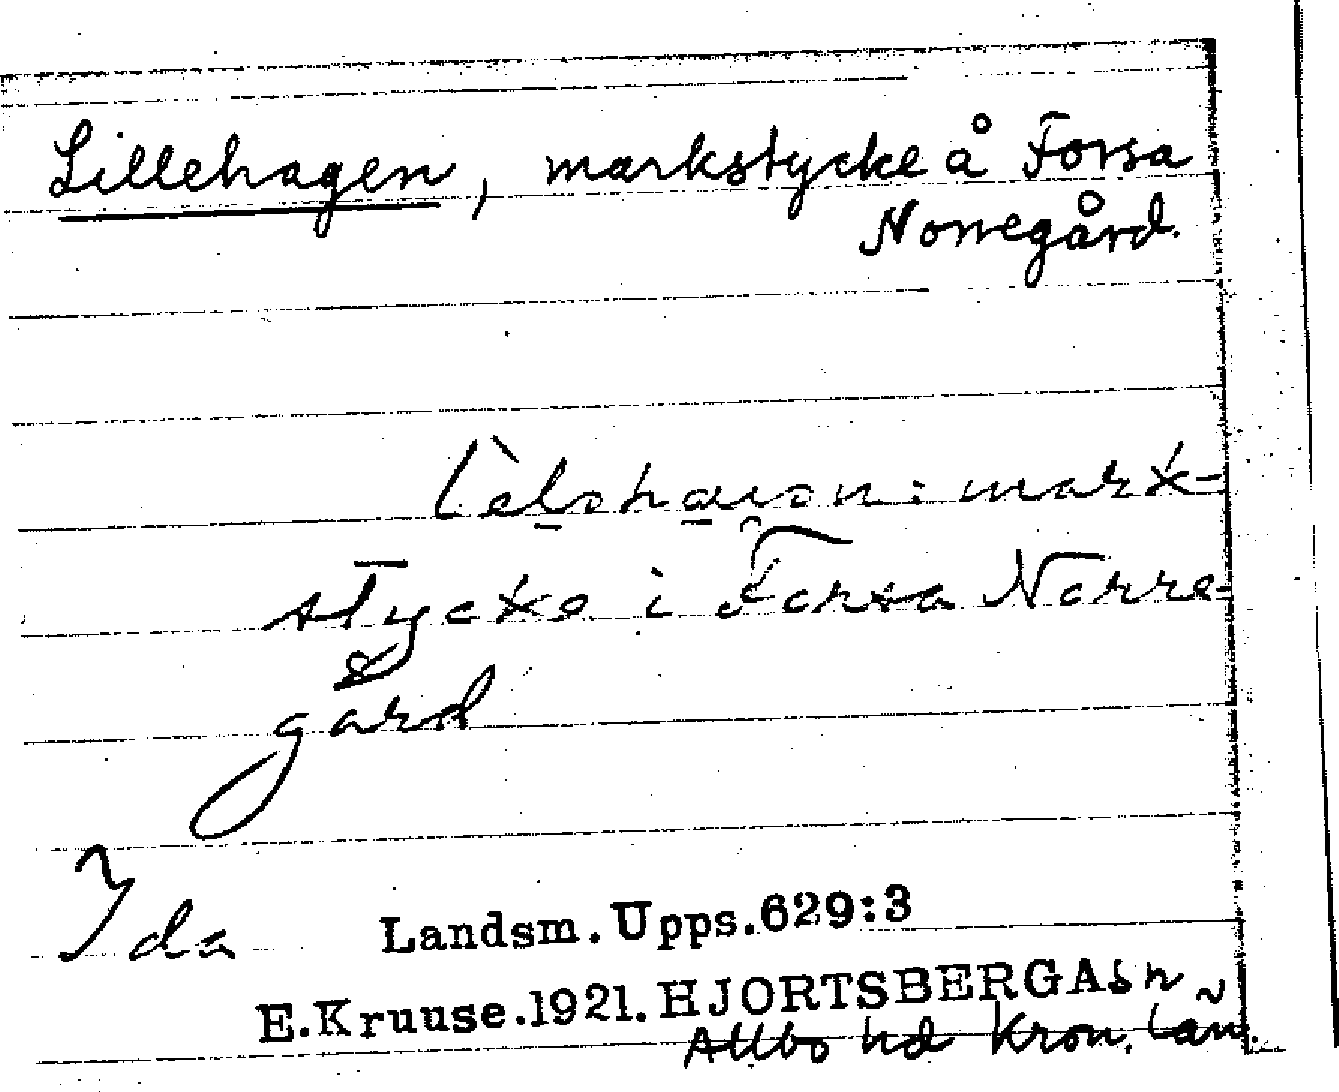 Lillehagen, markstycke å Forsa
Norregård.
mark-
stycke i Forsa Norre-
gård
Ida
Landsm. Upps. 629:3
E. Kruuse. 1921. HJORTSBERGA sn
Allbo hd Kron. län.